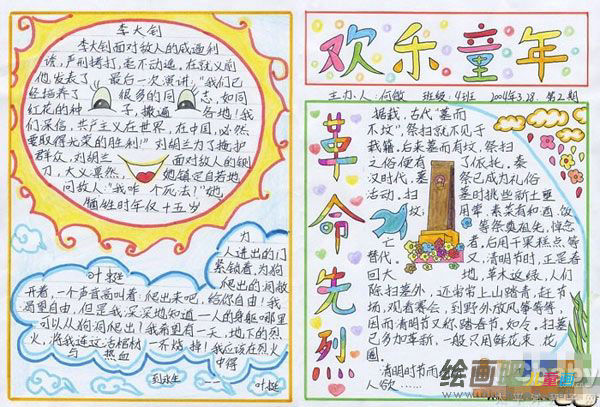 李大钊
李大钊面对敌人的威逼利
诱，严刑拷打，毫不动遥，在就义刑
他发表了 最后一次演讲，"我们已
经培养了 很多的同 志，如同
红花的种 子，撒遍 各地！我
们深信，共产主义在世界，在中国，必然
要取得光荣的胜利！"刘胡兰为了掩护
群众，刘胡兰 面对敌人的铡
刀，大义凛然， 她镇定自若地
问敌人："我咋一个死法！"她
牺牲时年仅十五岁
叶挺
为
人进出的门
紧锁着，为狗
爬出的洞敞
开着，一个声音高叫着：爬出来吧，给你自由！我
渴望自由，但是我深深地知道——人的身躯哪里
可以从狗洞爬出！我希望有一天，地下的烈
火，将我连这活棺材一齐烧掉！我应该在烈火
与热血 中得
到永生 —— 叶挺
欢乐童年
主办人：何敏 班级：4班 2004年3.28. 第2期
革命先烈
据载，古代"墓而
不坟"，祭扫就不见于
载籍.后来墓而有坟，祭扫
之俗便有了依托.秦
汉时代.墓祭已成为礼俗
活动.扫墓时挑些新土垩
坟，用荤、素菜有和酒、饭
等祭奠祖先，悼念
亡者.后用干果糕点等
替代. 又，清明节时，正是春
回大地，草木返绿，人们
除扫墓外，还常常上山踏青，赶节
场，观看赛会，到野外放风筝等等，
因而清明节又称踏春节.如今，扫墓已
多加革新，一般只用鲜花束、花
圈.
清明时节雨
人欲……
绘画吧